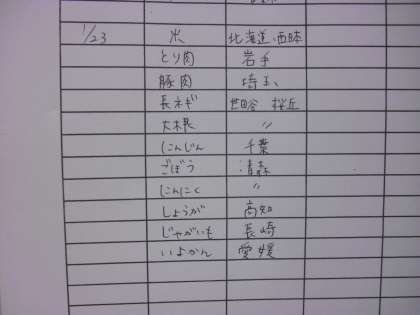 1/23 米 北海道・西日本
とり肉 岩手
豚肉 埼玉
長ネギ 世田谷 桜丘
大根 〃
にんじん 千葉
ごぼう 青森
にんにく 〃
しょうが 高知
じゃがいも 長崎
いよかん 愛媛